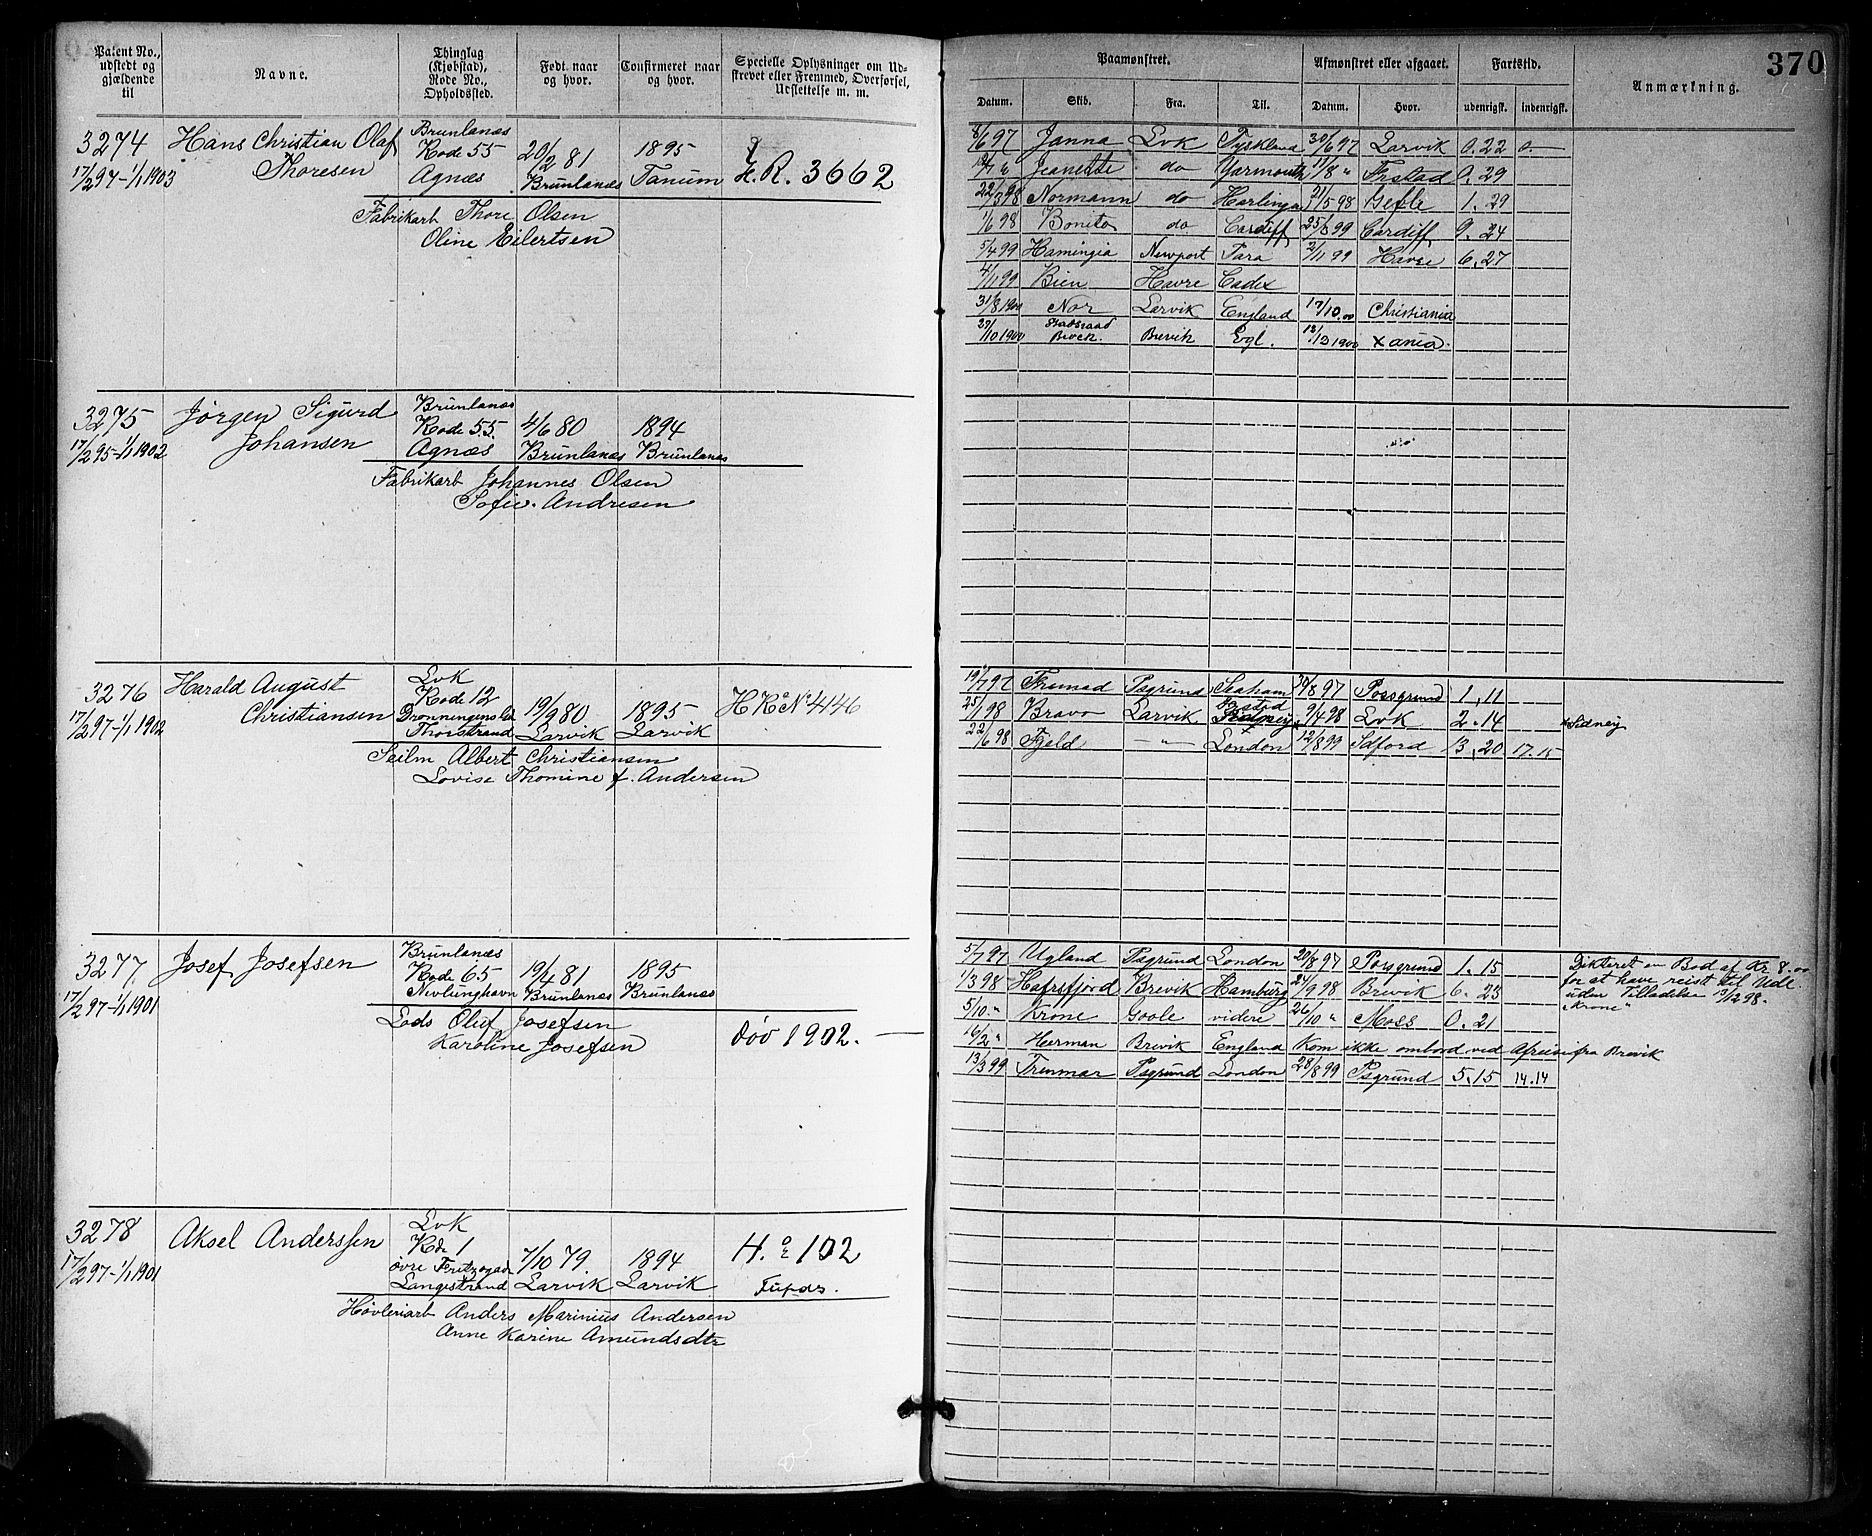 370
Patent No., udstedt og gjældende til
Navne.
Thinglag (Kjøbstad), Rode No., Opholdssted.
Født naar og hvor.
Confirmeret naar og hvor.
Specielle Oplysninger om Udskrevet eller Fremmed, Overførsel, Udslettelse m. m.
Paamønstret.
Afmønstret eller afgaaet.
Fartstid.
Anmærkning.
Datum. Skib. Fra. Til. Datum. Hvor. udenrigsk. indenrigsk.
3274 Hans Christian Olaf Brunlanæs
Thoresen Rode 55 20/2 81 1895
17/2 97-1/1 1903 Agnæs Brunlanæs Tanum H.R. 3662
Fabrikarb Thore Olsen
Oline Eilertsen
8/6 97 Janna Lvk Tyskland 30/6 97 Larvik 0.22 0.-
Jeanette do Yarmouth 11/8 " Frstad 0.29
22/3 98 Normann do Harlingen 21/5 98 Gefle 1.29
1/6 98 Bonito do Cardiff 25/8 99 Cardiff 9.24
5/4 99 Hamingia Newport Para 2/11 99 Havre 6.27
4/11 99 Bien Havre Cadix
31/8 1900 Nor Larvik England 17/10.00 Christiania
27/10 1900 Statsraad Brock. Brevik Egl. 1900 Xania.
3275 Jørgen Sigurd Brunlanæs
Johansen Rode 55. 4/6 80 1894
17/2 95-1/1 1902 Agnæs Brunlanæs Brunlanæs
Fabrikarb Johannes Olsen
Sofie Andresen
3276 Harald August Lvk
Christiansen Rode 12 19/9 80 1895 H K No 4446
17/2 97-1/1 1902 Dronningens Gd
Thorstrand Larvik Larvik
Seilm Albert Christiansen
Lovise Thomine f. Andersen
19/7 97 Fremad Psgrund Seaham 30/8 97 Porsgrund 1.11
25/1 98 Bravo Larvik 9/4 98 Lvk 2.14 Sidney
22/6 98 Fjeld —"— London 12/8 99 13.20 17.15
3277 Josef Josefsen Brunlanæs
Rode 65 19/4 81 1895
17/2 97-1/1 1901 Nevlunghavn Brunlanæs Brunlanæs
Lods Oluf Josefsen
Karoline Josefsen
Døv 1902.
5/7 97 Ugland Psgrund London 20/8 97 Porsgrund 1.15
1/3 98 Hafrsfjord Brevik Hamburg 24/9 98 Brevik 6.23
5/10 " Krone Goole videre 26/10 " Moss 0.21
Dikteret en Bod af Kr 8.00
for at have reist til Udl.
uden Tilladelse 13/12 98.
"Krone"
16/2 " Herman Brevik England Kom ikke ombord ved Afreise fra Brevik
13/3 99 Psgrund London 28/8 99 Psgrund 5.15 14.14
3278 Aksel Anderssen Lvk
Rode 1 7/10 79. 1894 H. 102
17/2 97-1/1 1901 øvre Fritzøgade
Langestrand Larvik Larvik
Høvleriarb Anders Marinius Andersen
Anne Karine Amundsdtr